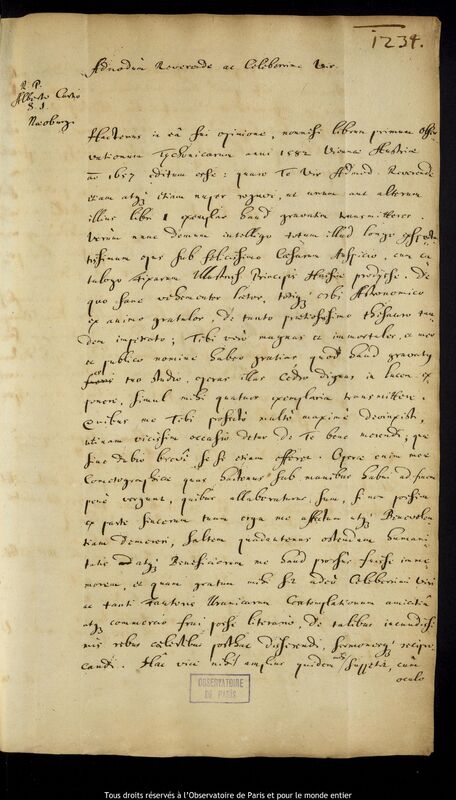 1234.
Admodum Reverende ac Celeberrime Vir
R. P.
Alberto Curtio
S. I.
Neoburgi
Hactenus in eâ fui opinione, nonnisi librum primum Obser
vationum Tychonicarum anni 1582 Viennæ Austriæ
aõ 1657 editum esse: quare Te Vir Admod. Reverende
etiam atq; etiam nuper rogavi, ut unum aut alterum
illius libri 1 exemplar haud gravatim transmitteres.
Verùm nunc demum intelligo totum illud longè
tissimum opus sub felicissimo Cæsareo Auspicio, cum ca
talogo Fixarum Illustriss. Principis Hassiæ prodijsse. de
quo sane vehementer lætor, totiq; orbi Astronomico
ex animo gratulor, de tanto pretiosissimo thesauro tan
dem impetrato; Tibi verò magnas et immortales, eo meo
ac publico nomine habeo gratias, quod haud gravatus
tuo studio, operas illas Cedro dignas in lucem ex
ponere, simul mihi quatuor exemplaria transmittere.
Quibus me Tibi profectò multò maximè devinxisti,
utinam vicissim occasio detur de Te bene merendi; quæ
sine dubio brevi se se etiam offeret. Operæ enim meæ
Cometographicæ quas hactenus sub manibus habui ad finem
penè vergunt, quibus allaboraturus sum, si non possim
ex parte sincerum tuum erga me affectum atq; Benevolen
tiam demereri, saltem quadantenus ostendam humani
tatis atq; Beneficiorum me haud prorsus fuisse imme
morem, et quam gratum mihi sit adeò Celeberrimi Viri
ac tanti Fautoris Uranicarum Contemplationum amicitiâ
atq; commercio frui posse literario, de talibus iucundissi
mis rebus cœlestibus posthac disserendi, sermonesq; recipro
candi. Hac vice nihil amplius quidem mihi suppetit, cum
oculo
OBSERVATOIRE
DE PARIS
Tous droits réservés à l'Observatoire de Paris et pour le monde entier